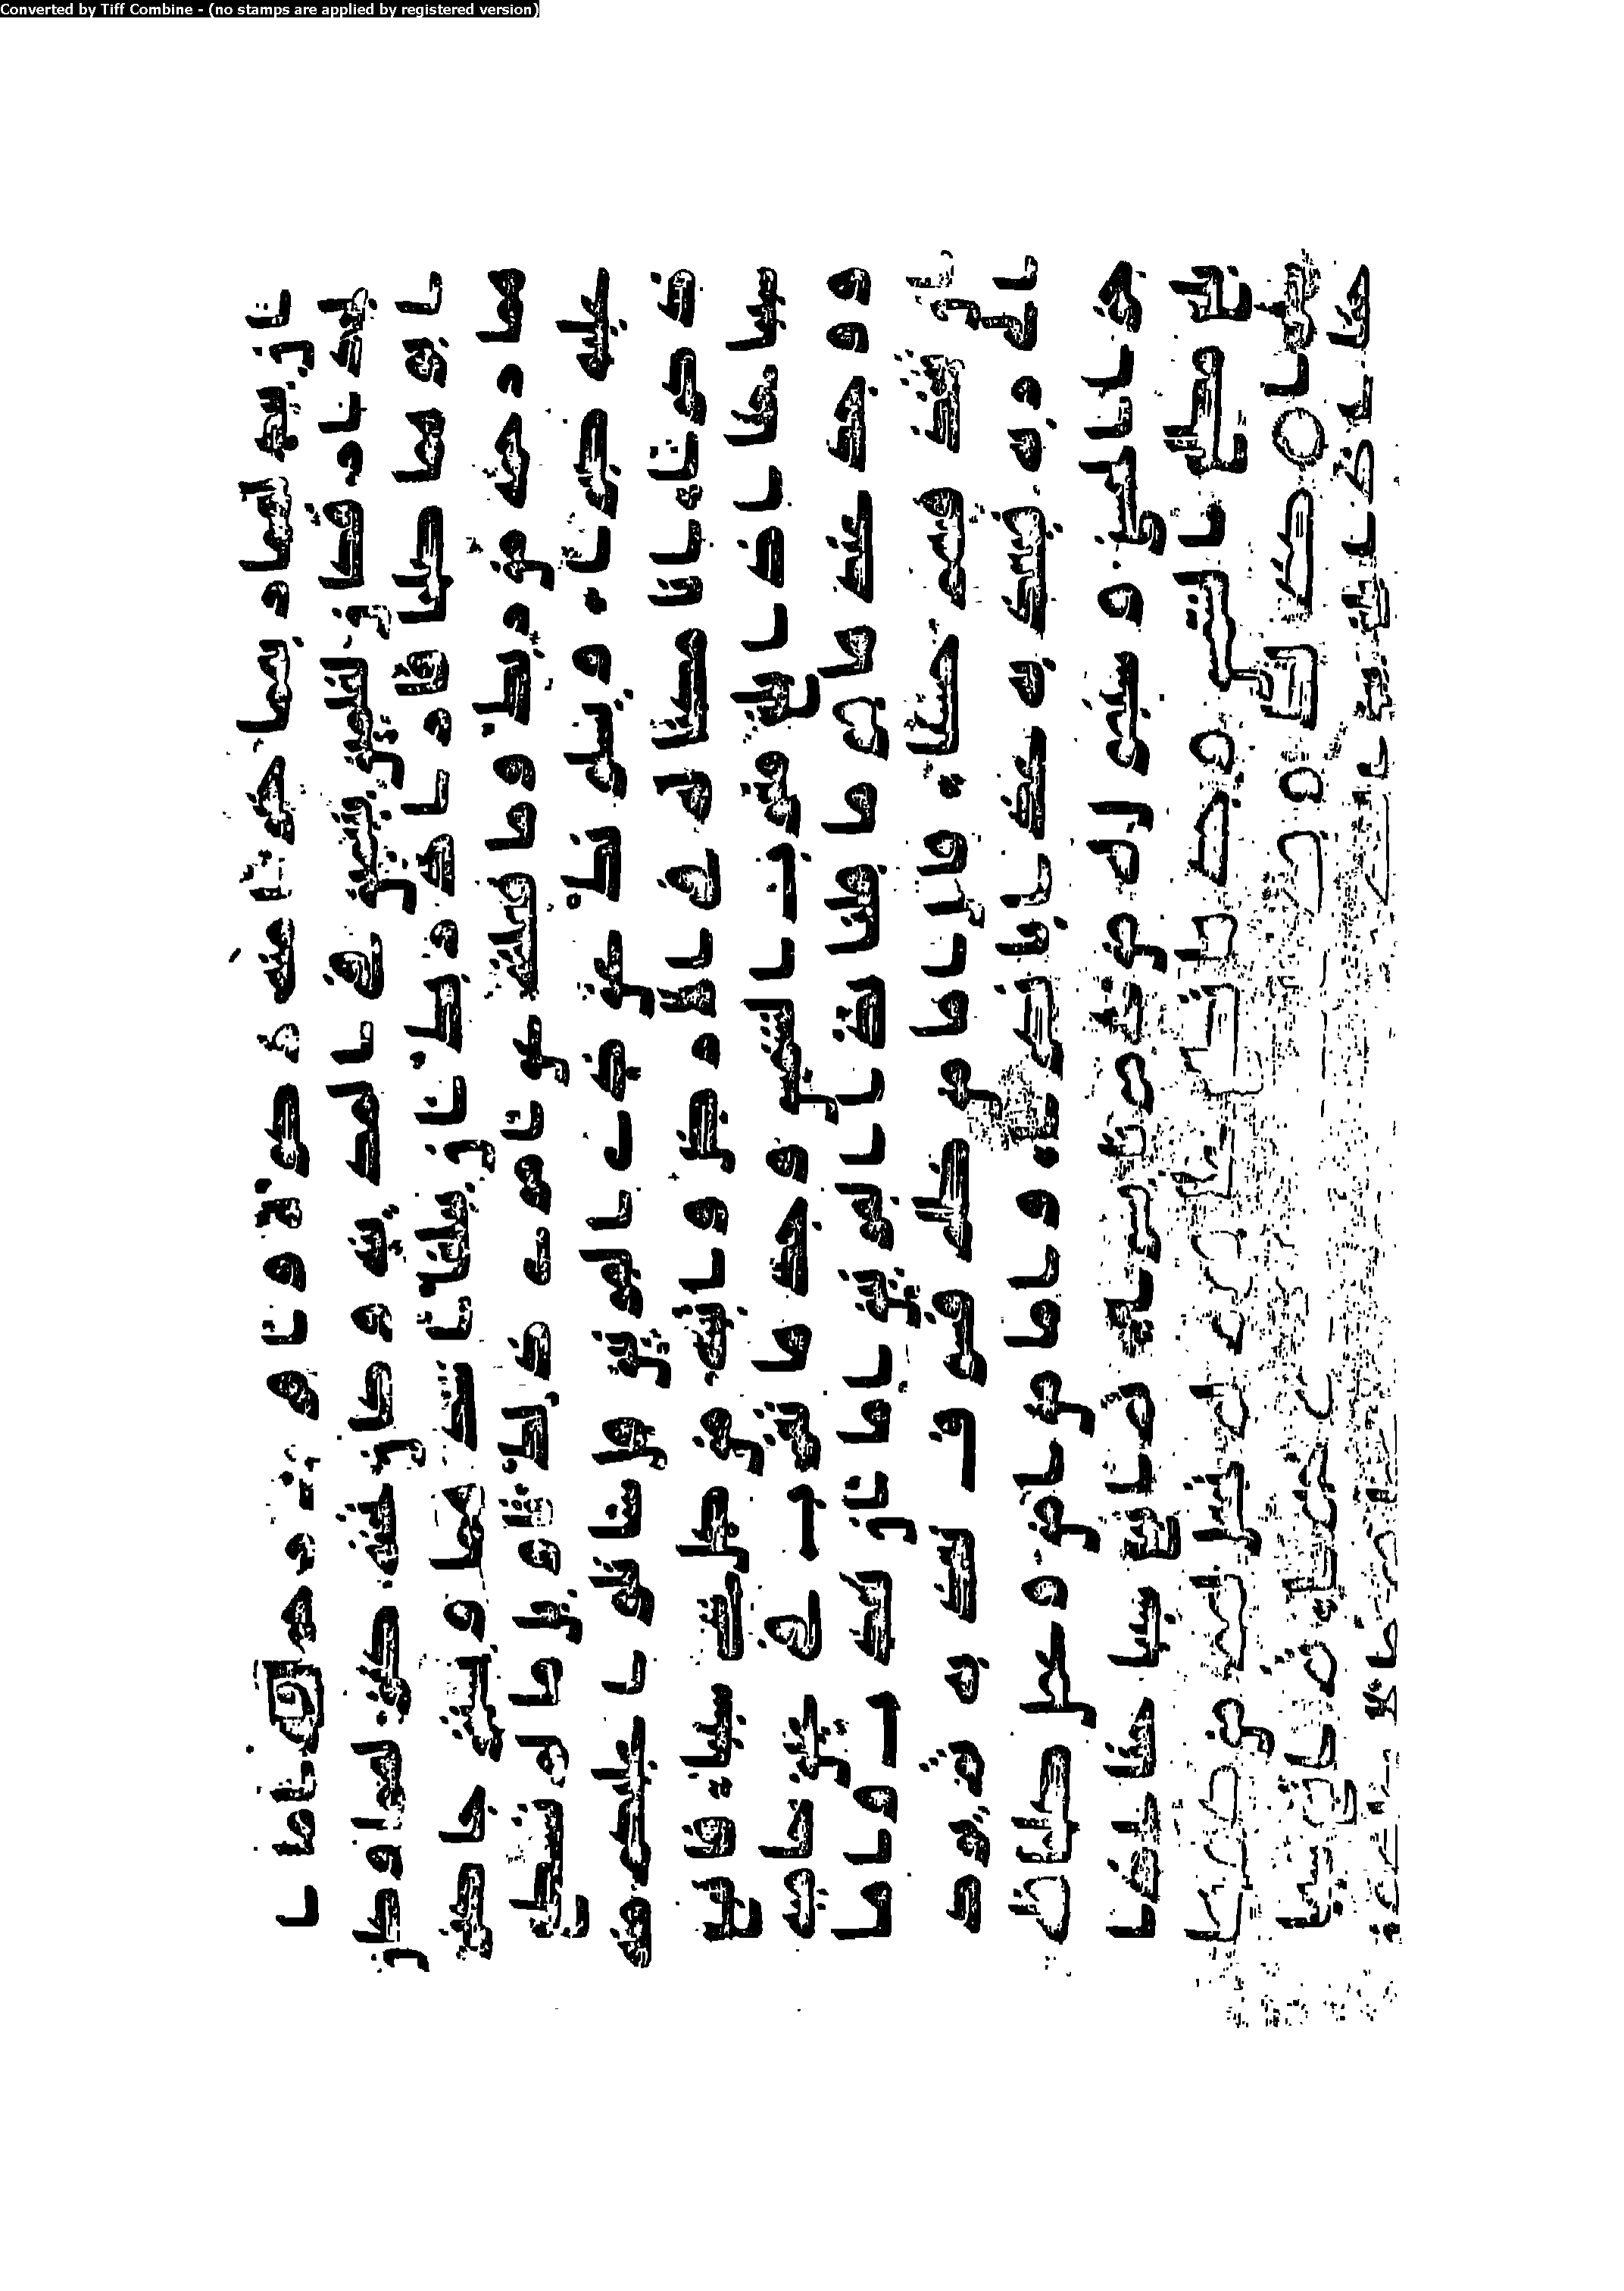 ان يبدلهما ربهما خيرا منه زكوه واقرب رحما واما ا
لجدار فكان لغلمين يتيمين في المدينه وكان تحته كنز لهما وكان
ابوهما صلحا فاراد ربك ان يبلغا اشدهما ويستخرجا كنز
هما رحمه من ربك وما فعلته عن امري ذلك تاويل ما لم تسطع
عليه صبرا ويسلونك عن ذي القرنين قل ساتلوا عليكم منه
ذكرا انا مكنا له في الارض واتينه من كل شي سببا فاتبع
سببا حتى اذا بلغ مغرب الشمس وجدها تغرب في عين حميه
ووجد عندها قوما قلنا يذا القرنين اما ان تعذب واما
ان تتخذ فيهم حسنا قال اما من ظلم فسوف نعذبه ثم يرد
الى ربه فيعذبه عذابا نكرا واما من امن وعمل صلحا
فله جزا الحسنى وسنقول له من امرنا يسرا ثم اتبع سببا حتى اذا
بلغ مطلع الشمس وجدها تطلع على قوم لم نجعل لهم من دونها
Converted by Tiff Combine - (no stamps are applied by registered version)